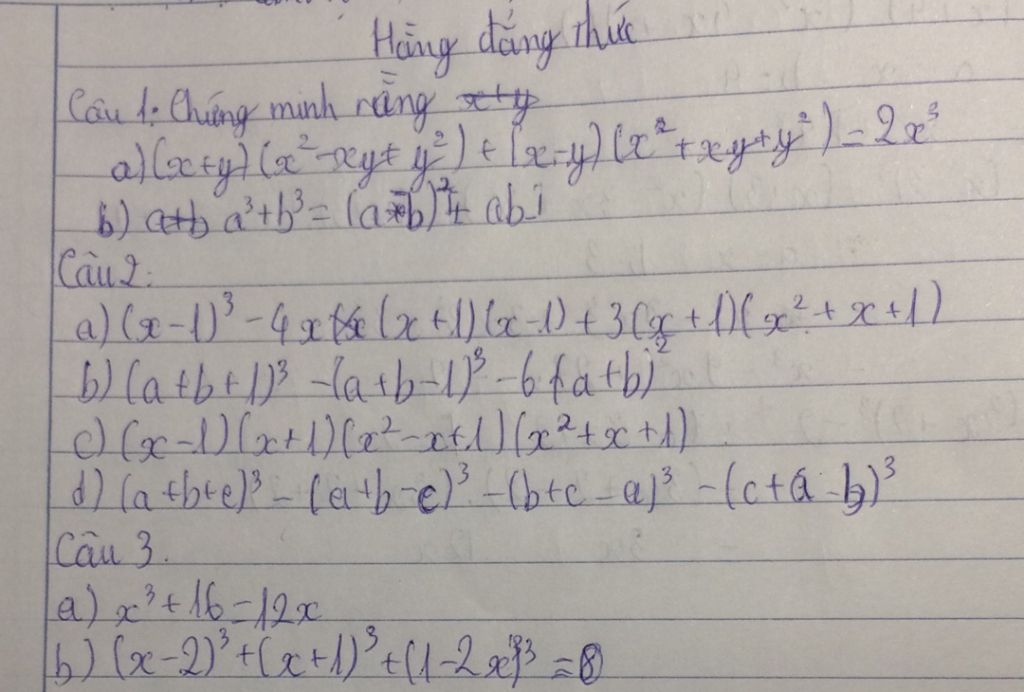 Hằng đẳng thức
Câu 1: Chứng minh rằng
a) (x+y)(x²-xy+y²) + (x-y)(x²+xy+y²) = 2x³
b) a³+b³ = (a-b)²+ ab
Câu 2:
a) (x-1)³ - 4x (x+1)(x-1) + 3(x+1)(x²+x+1)
b) (a+b+1)³ - (a+b-1)³ - 6(a+b)²
c) (x-1)(x+1)(x²-x+1)(x²+x+1)
d) (a+b+c)³ - (a+b-c)³ - (b+c-a)³ - (c+a-b)³
Câu 3.
a) x³+16=12x
b) (x-2)³+(x+1)³+(1-2x)³ =